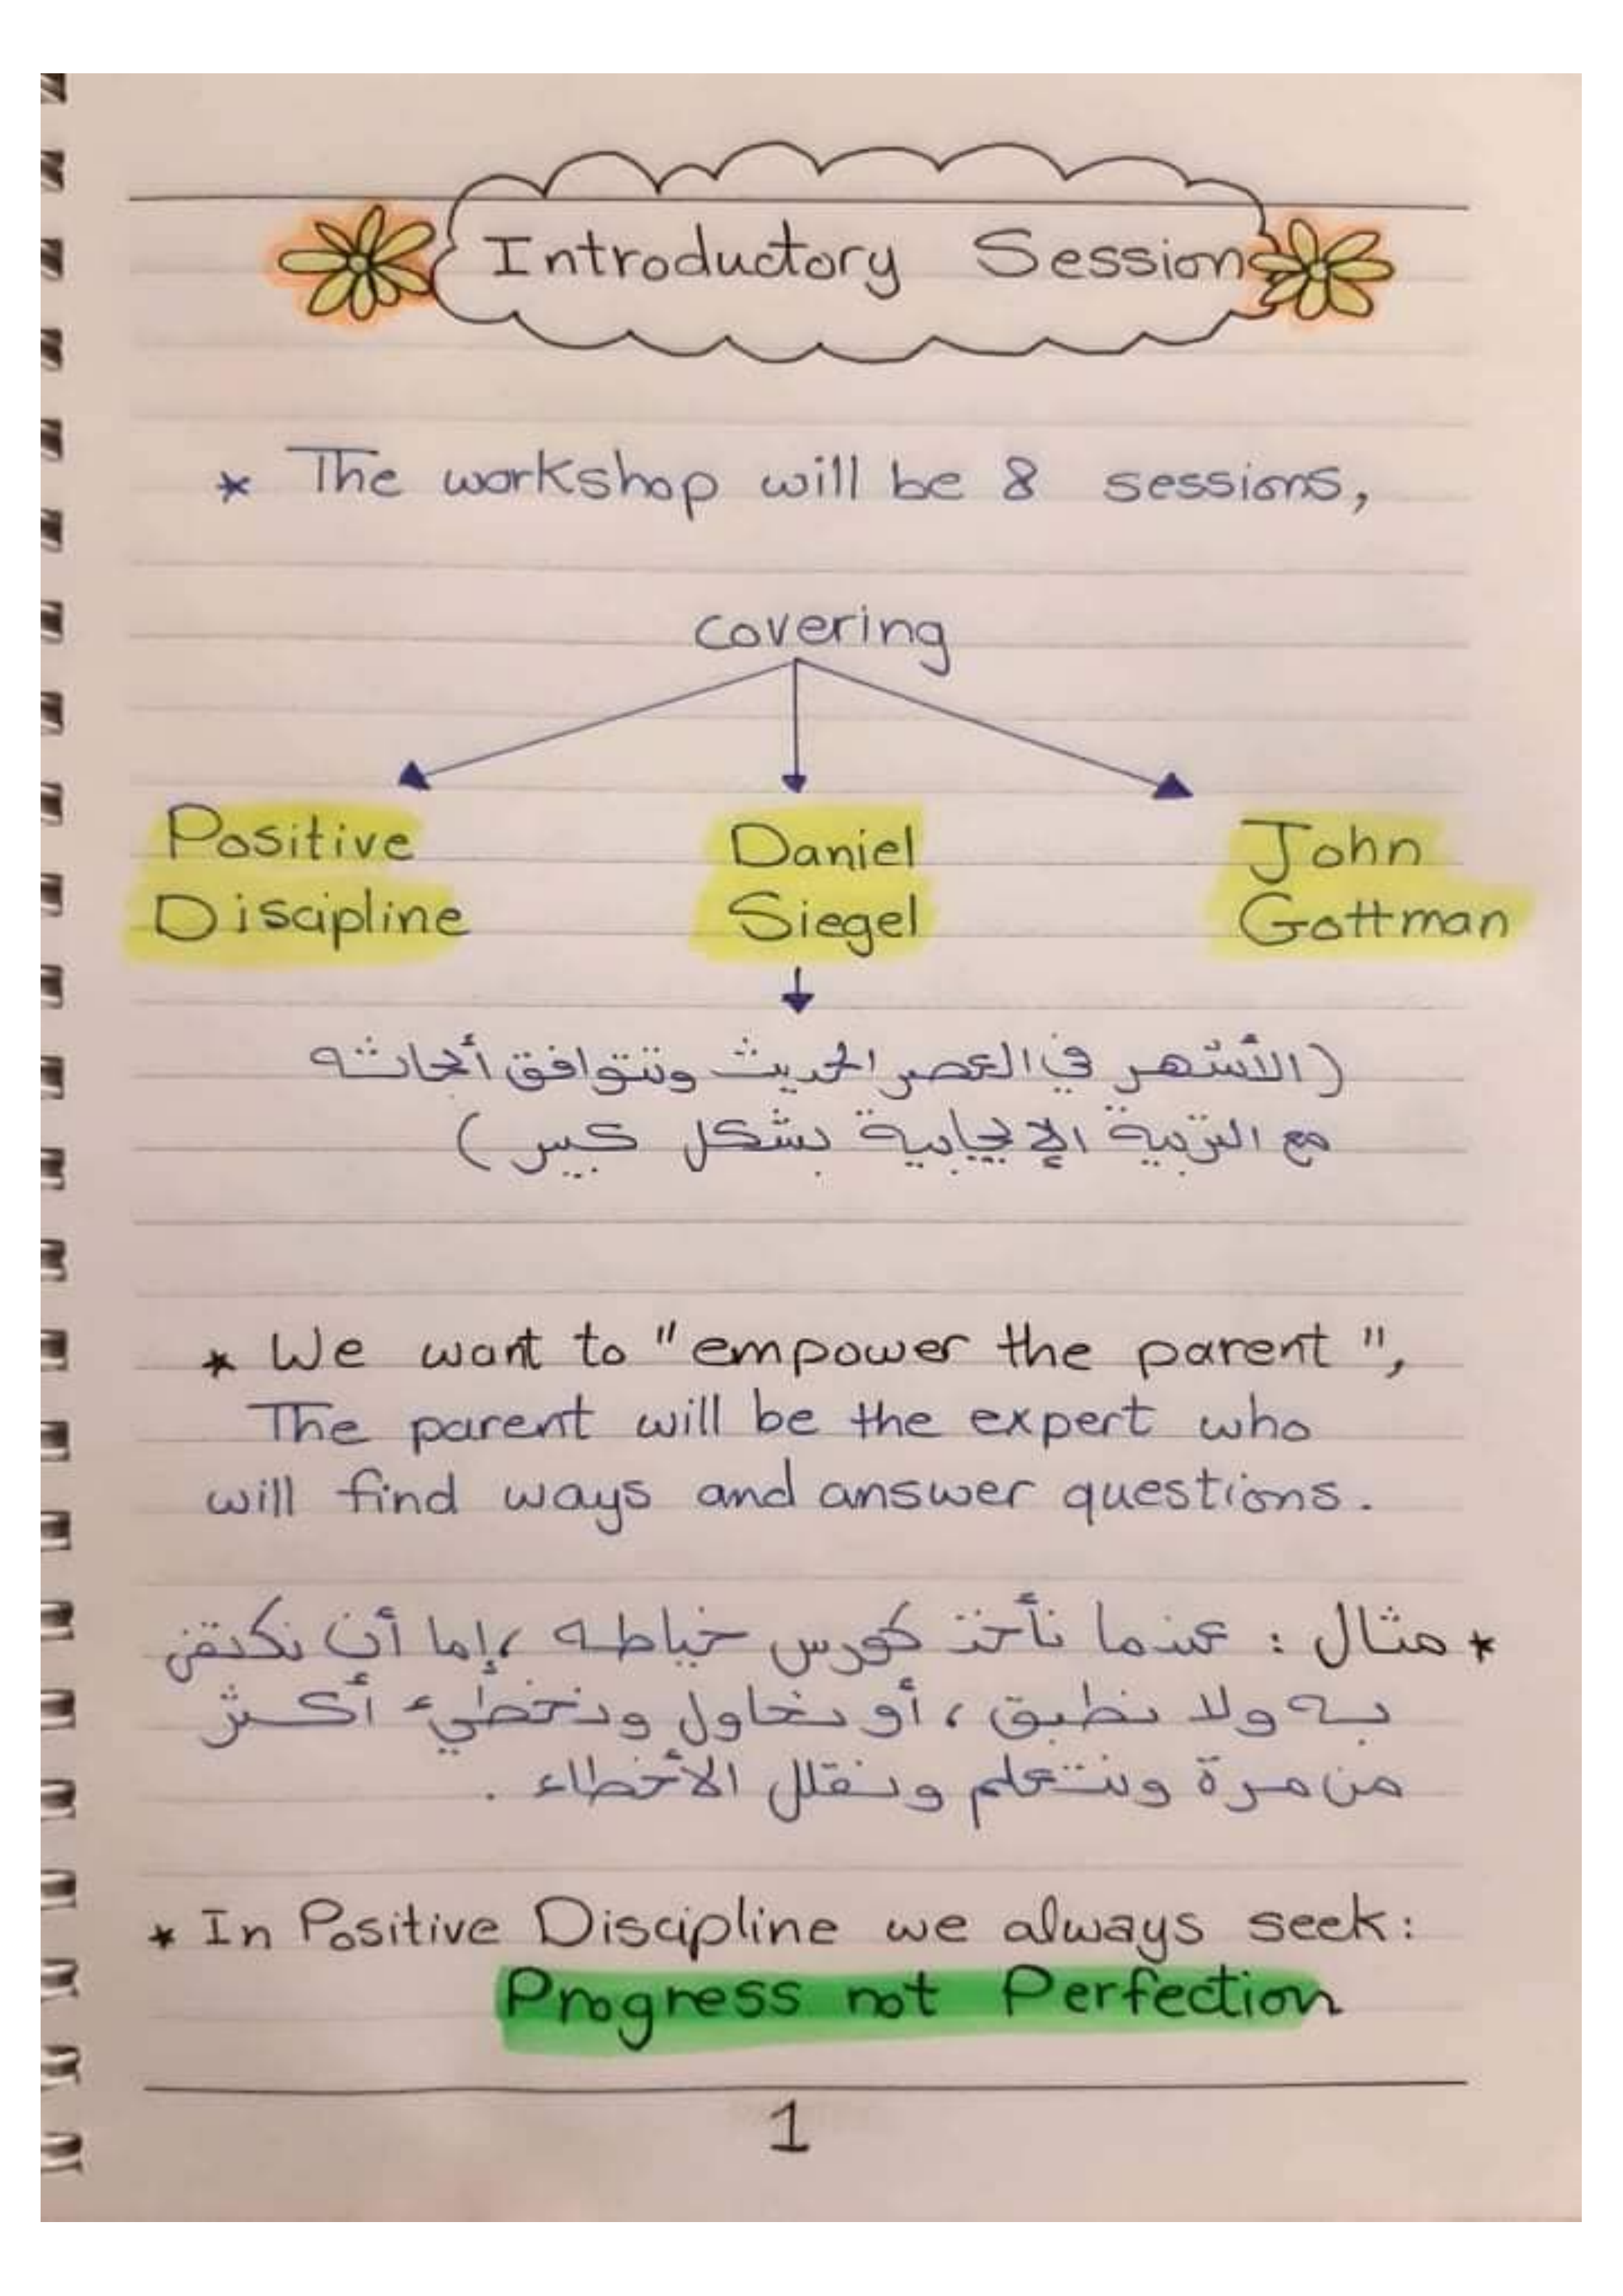 Introductory Session
* The workshop will be 8 sessions,
covering
Positive Discipline
Daniel Siegel
John Gottman
(الأشهر في العصر الحديث وتتوافق أبحاثه
مع التربية الإيجابية بشكل كبير)
* We want to "empower the parent",
The parent will be the expert who
will find ways and answer questions.
* مثال : عندما نأخذ كورس خياطه ، إما أن نكتفي
به ولا نطبق ، أو نحاول ونخطيء أكثر
من مرة ونتعلم ونقلل الأخطاء .
* In Positive Discipline we always seek:
Progress not Perfection
1